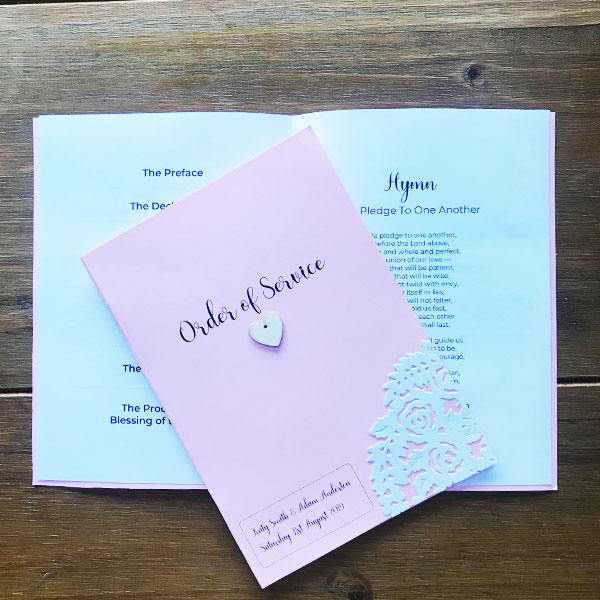 The Preface
The Decl
The
The Proc
Blessing of
Hymn
Pledge To One Another
pledge to one another,
before the Lord above,
and whole and perfect,
union of our love —
that will be patient,
that will be wise,
twist with envy,
itself in lies;
will not falter,
us fast,
each other
last.
guide us
to be,
Order of Service
Katy Smith & Adam Anderson
Saturday August 2019